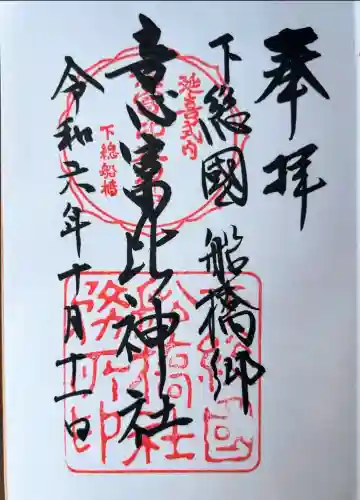 奉拝
下總國
船橋郷
意富比神社
令和六年十月十一日
延喜式内
下總船橋